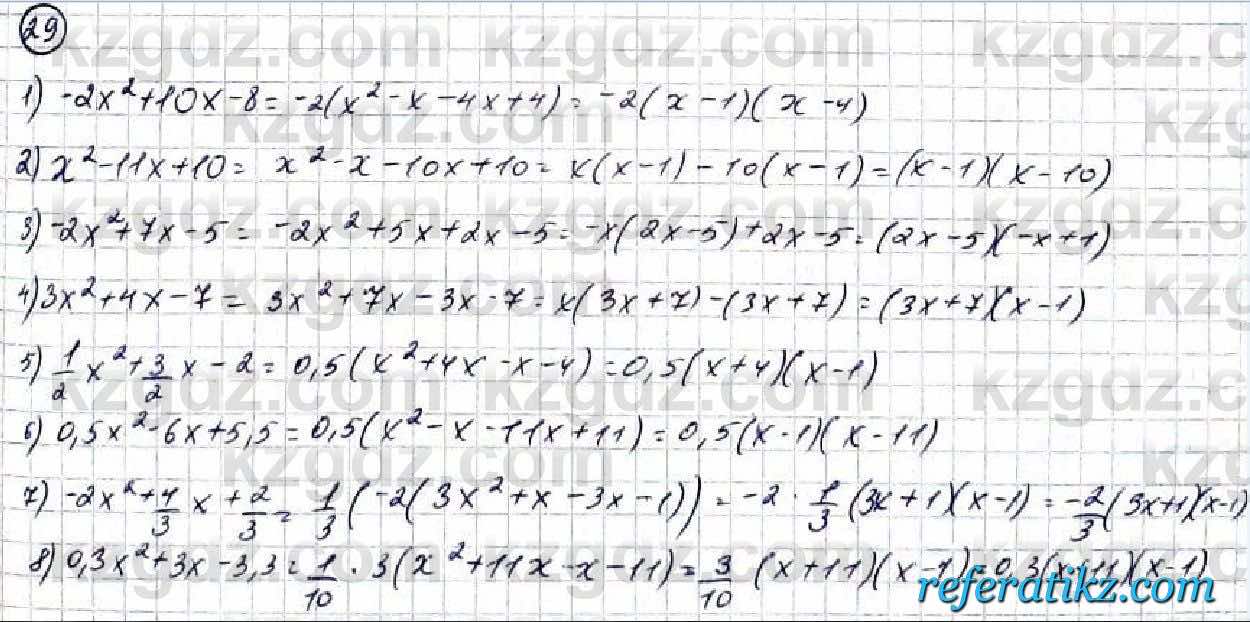 29
1) -2x²+10x-8=-2(x²-x-4x+4)=-2(x-1)(x-4)
2) x²-11x+10= x²-x-10x+10= x(x-1)-10(x-1)=(x-1)(x-10)
3) -2x²+7x-5= -2x²+5x+2x-5=-x(2x-5)+2x-5=(2x-5)(-x+1)
4) 3x²+4x-7= 3x²+7x-3x-7=x(3x+7)-(3x+7)=(3x+7)(x-1)
5) 1/2 x²+3/2 x-2=0,5(x²+4x-x-4)=0,5(x+4)(x-1)
6) 0,5x²-6x+5,5=0,5(x²-x-11x+11)=0,5(x-1)(x-11)
7) -2x²+4/3 x+2/3= 1/3(-2(3x²+x-3x-1))=-2·1/3(3x+1)(x-1)=-2/3(3x+1)(x-1)
8) 0,3x²+3x-3,3=1/10·3(x²+11x-x-11)=3/10(x+11)(x-1)=0,3(x+11)(x-1)
kzgdz.com
referatikz.com